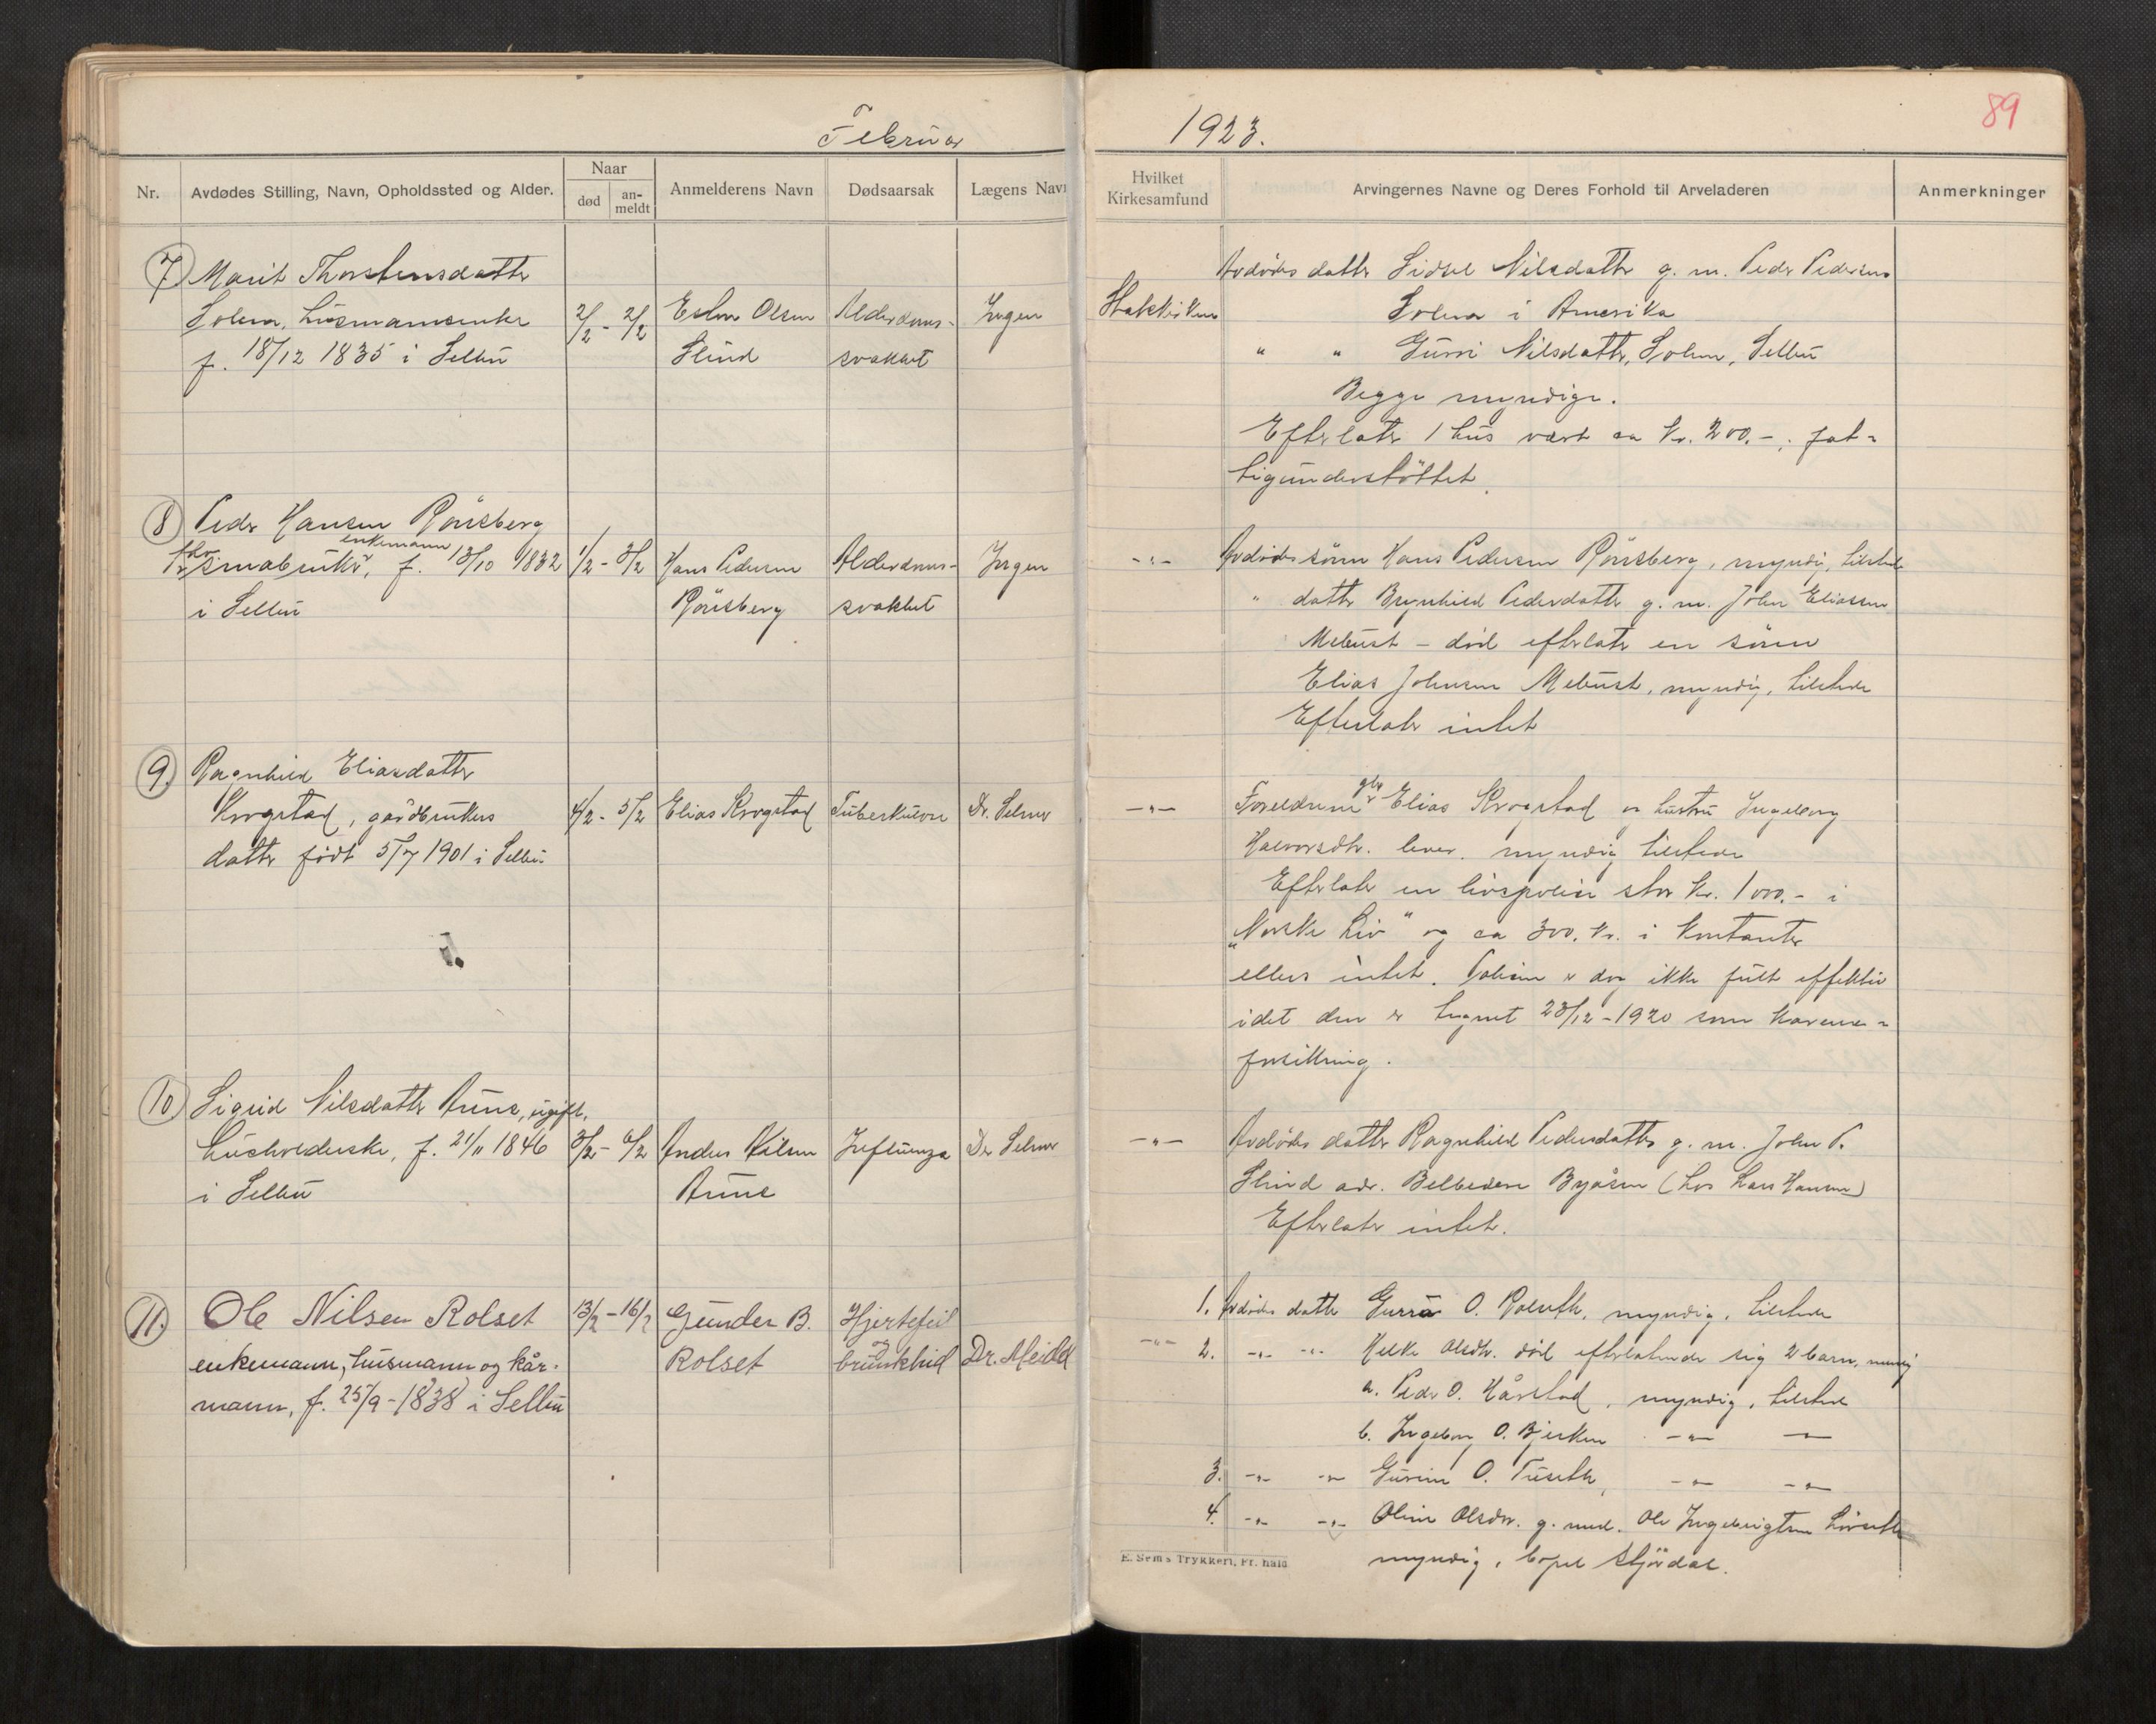 Februar
1923.
89
Nr.
Avdødes Stilling, Navn, Opholdssted og Alder.
Naar
død
an-
meldt
Anmelderens Navn
Dødsaarsak
Lægens Navn
Hvilket
Kirkesamfund
Arvingernes Navne og Deres Forhold til Arveladeren
Anmerkninger
7
Marit Thorstensdatter
husmannsenke
f. 18/12 1835 i Selbu
2/2 - 2/2
Olsen
Slind
Alderdoms-
svakhet
Ingen
Statskirken
Avdødes datter Sidsel Nilsdatter g. m. Peder Pedersen
i Amerika
" " Gurri Nilsdatter, Selbu
Begge myndige.
Efterlater 1 hus værd ca kr. 200.-; fat-
tigunderstöttet.
8
Peder Hansen Rönsberg
fhv. småbruker, enkemann f. 13/10 1832
i Selbu
1/2 - 3/2
Hans Pedersen
Rönsberg
Alderdoms-
svakhet
Ingen
-"-
Avdødes sönn Hans Pedersen Rönsberg, myndig, tilstede
" datter Brynhild Pedersdatter g. m. John Eliassen
Mebust - död efterlater en sönn
Elias Johnsen Mebust, myndig, tilstede
Efterlater intet
9.
Ragnhild Eliasdatter
Krogstad, gårdbrukers
datter födt 5/7 1901 i Selbu
4/2 - 5/2
Elias Krogstad
Tuberkulose
Dr. Selmer
-"-
Foreldrene gbr Elias Krogstad og hustru Ingeborg
Halvorsdtr. lever. myndig tilstede
Efterlater en livspolise stor kr. 1000.- i
"Norske Liv" og ca 300. kr. i kontanter
ellers intet. Polisen er dog ikke fullt effektiv
idet den er tegnet 23/12-1920 som karense-
forsikring.
10
Sigrid Nilsdatter Aune, ugift.
husholderske, f. 21/11 1846
i Selbu
3/2 - 6/2
Anders Nilsen
Aune
Influenza
Dr Selmer
-"-
Avdödes datter Ragnhild Pedersdatter g. m. John P.
Slind adr. Belvedere Byåsen (hos Lars Hansen)
Efterlater intet.
11.
Ole Nilsen Rolset
enkemann, husmann og kår-
mann, f. 25/9-1838 i Selbu
13/2 - 16/2
Gunder B.
Rolset
Hjertefeil
og
bronkhit
Dr. Meidell
-"-
1. Avdödes datter O. Rolseth, myndig, tilstede
2. -"- -"- Olsdtr. död efterlatende sig 2 barn, myndig
a. Peder O. Hårstad, myndig, tilstede
b. Ingeborg O. Bjerken -"- -
3. -"- -"- Gurine O. Tuseth, -"- -"-
4. -"- -"- Oline Olsdtr. g. med. Ole Ingebrigtsen
myndig, bopel Stjördal.
E. Sem's Trykkeri, Fr.hald